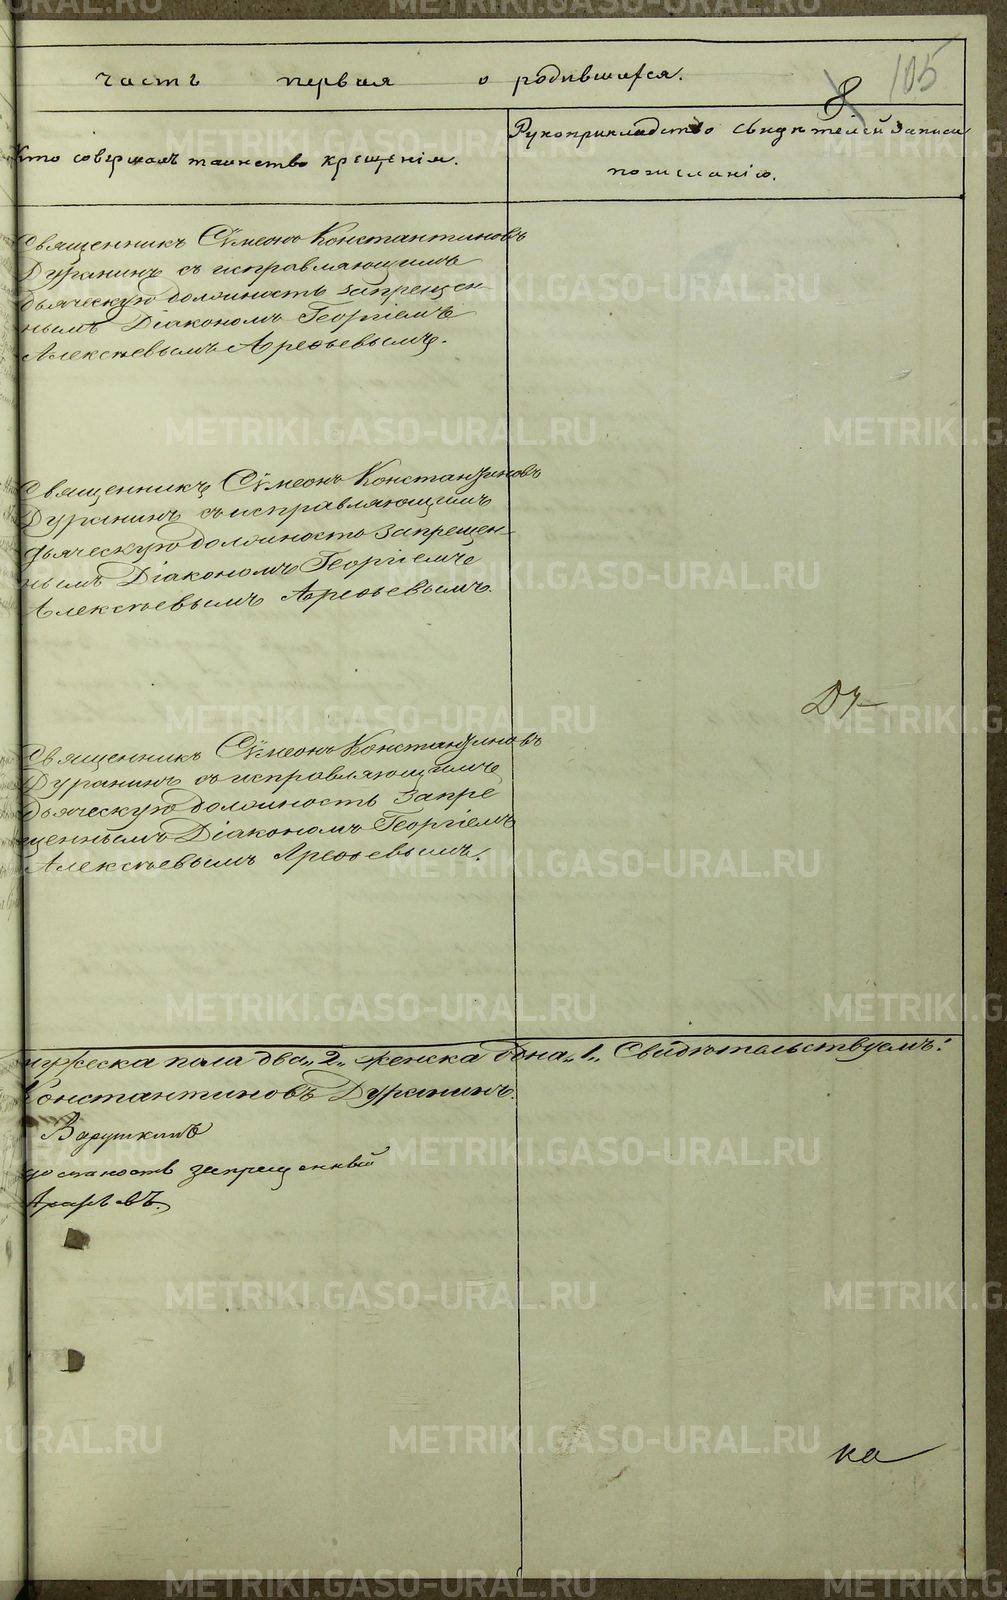 часть первая о родившихся.
8 105
Кто совершалъ таинство крещенія.
Рукоприкладство свидѣтелей записи
по желанію.
Священникъ Сѵмеонъ Константиновъ
Дуранинъ съ исправляющимъ
дьяческую должность запрещен-
нымъ Діакономъ Георгіемъ
Алексѣевымъ Арефьевымъ.
Священникъ Сѵмеонъ Константиновъ
Дуранинъ съ исправляющимъ
дьяческую должность запрещен-
нымъ Діакономъ Георгіемъ
Алексѣевымъ Арефьевымъ.
Ду-
Священникъ Сѵмеонъ Константиновъ
Дуранинъ съ исправляющимъ
дьяческую должность запре
щеннымъ Діакономъ Георгіемъ
Алексѣевымъ Арефьевымъ.
мужеска пола два „2„ женска одна „1„ Свидѣтельствуемъ:
Константиновъ Дуранинъ.
запрещенный
ка
METRIKI.GASO-URAL.RU